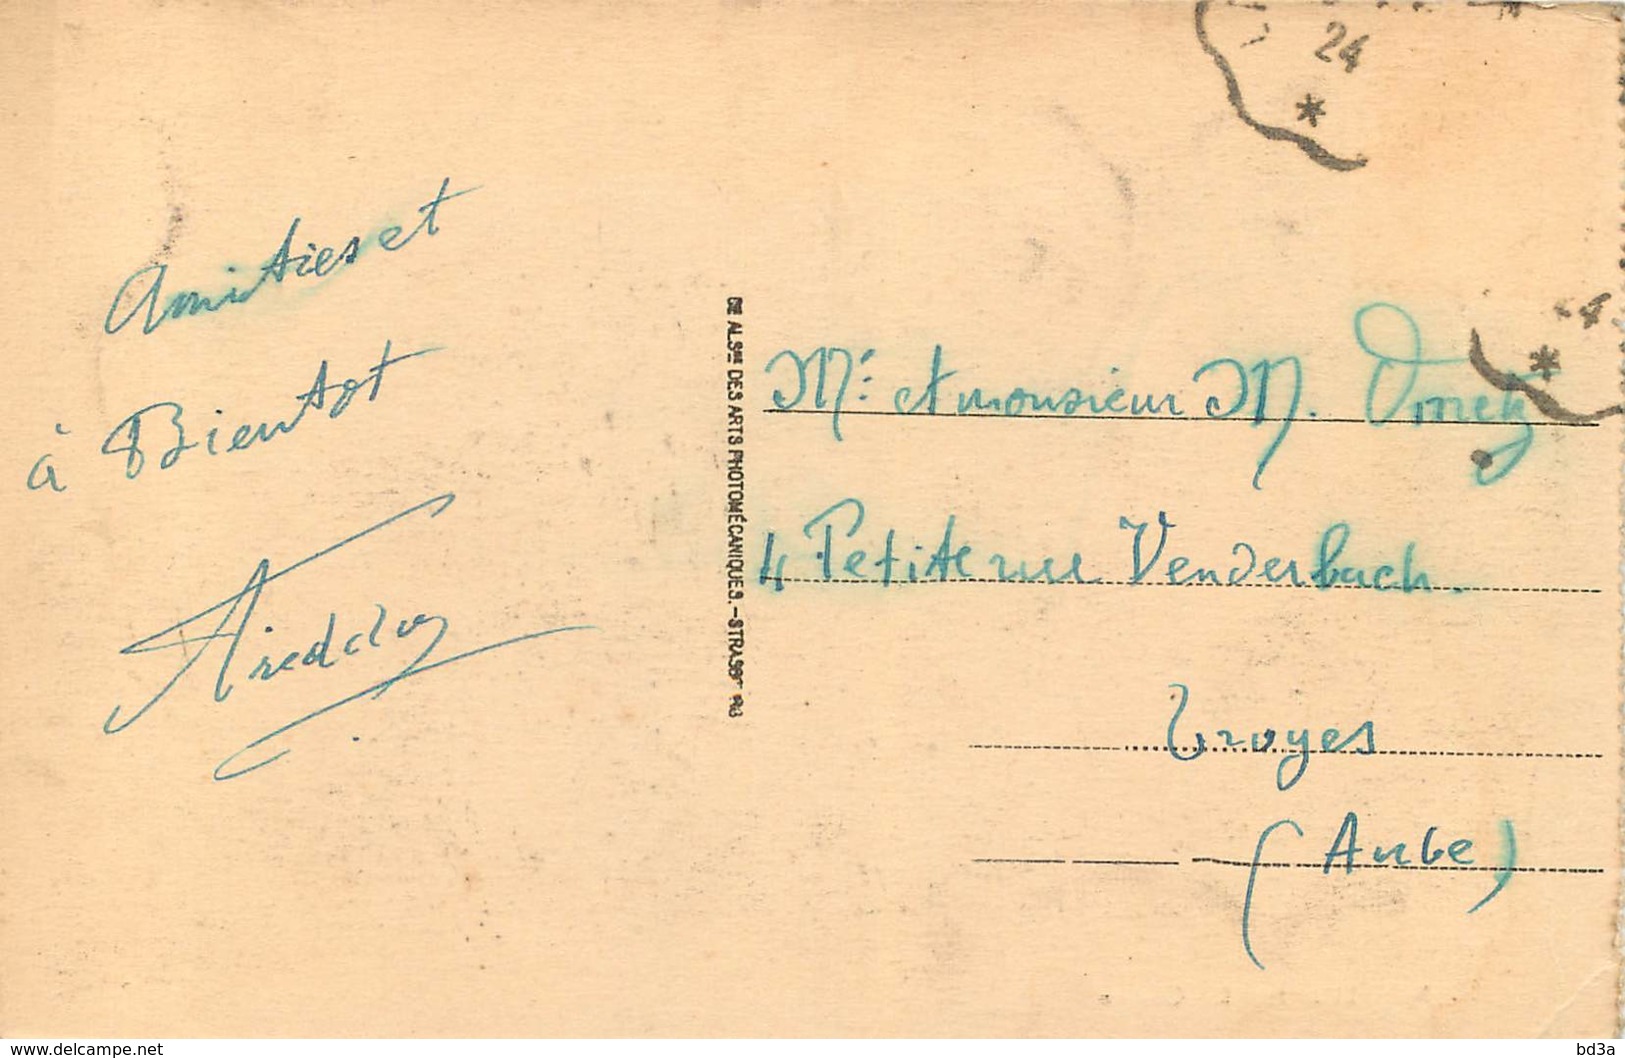 24
Amities et
à Bientot
CIE ALSNE DES ARTS PHOTOMÉCANIQUES.-STRASBG
Mr et monsieur M.
4 Petite rue Venderbach.
Troyes
(Aube)
www.delcampe.net
bd3a